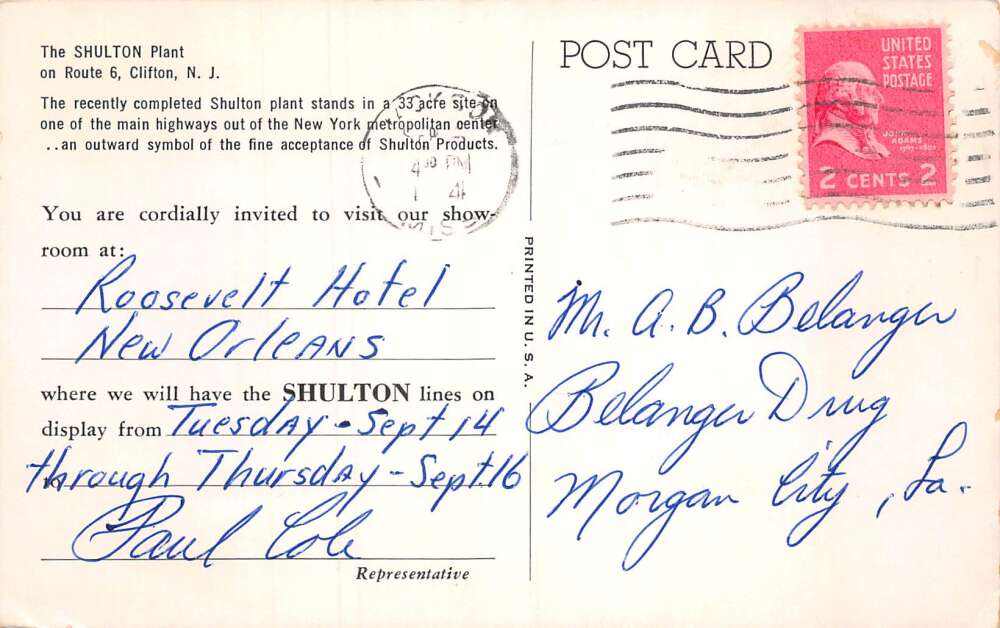 The SHULTON Plant
on Route 6, Clifton, N. J.
The recently completed Shulton plant stands in a 33 acre site on
one of the main highways out of the New York metropolitan center
..an outward symbol of the fine acceptance of Shulton Products.
You are cordially invited to visit our show-
room at:
Roosevelt Hotel
New Orleans
where we will have the SHULTON lines on
display from Tuesday - Sept 14
through Thursday - Sept. 16
Paul Cole
Representative
PRINTED IN U. S. A.
POST CARD
UNITED
STATES
POSTAGE
JOHN
ADAMS
2 CENTS 2
4 30 PM
MISS.
Mr. A. B. Belanger
Belanger Drug
Morgan City, La.